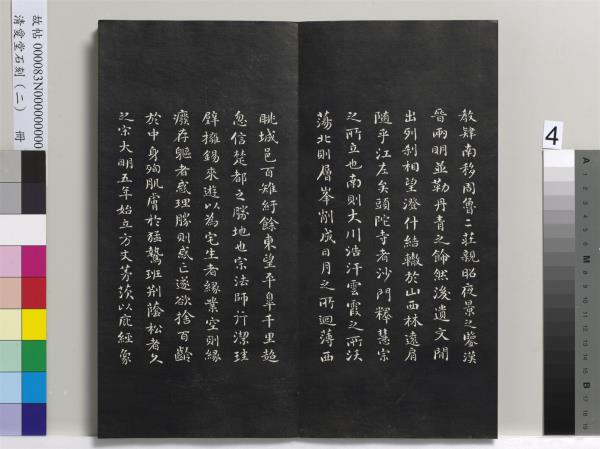 教肄南移周魯二莊親昭夜景之鑒漢
晉兩明並勒丹青之飾然後遺文間
出列刹相望澄什結轍於山西林遠肩
隨乎江左矣頭陀寺者沙門釋慧宗
之所立也南則大川浩汗雲霞之所沃
蕩北則層峯削成日月之所迴薄西
眺城邑百雉紆餘東望平皋千里超
忽信楚都之勝地也宗法師行潔珪
璧擁錫來遊以為宅生者緣業空則緣
廢存軀者惑理勝則惑亡遂欲捨百齡
於中身殉肌膚於猛鷙班荊蔭松者久
之宋大明五年始立方丈茅茨以庇經象
故帖 000083N000000000
清愛堂石刻(二) 冊
4